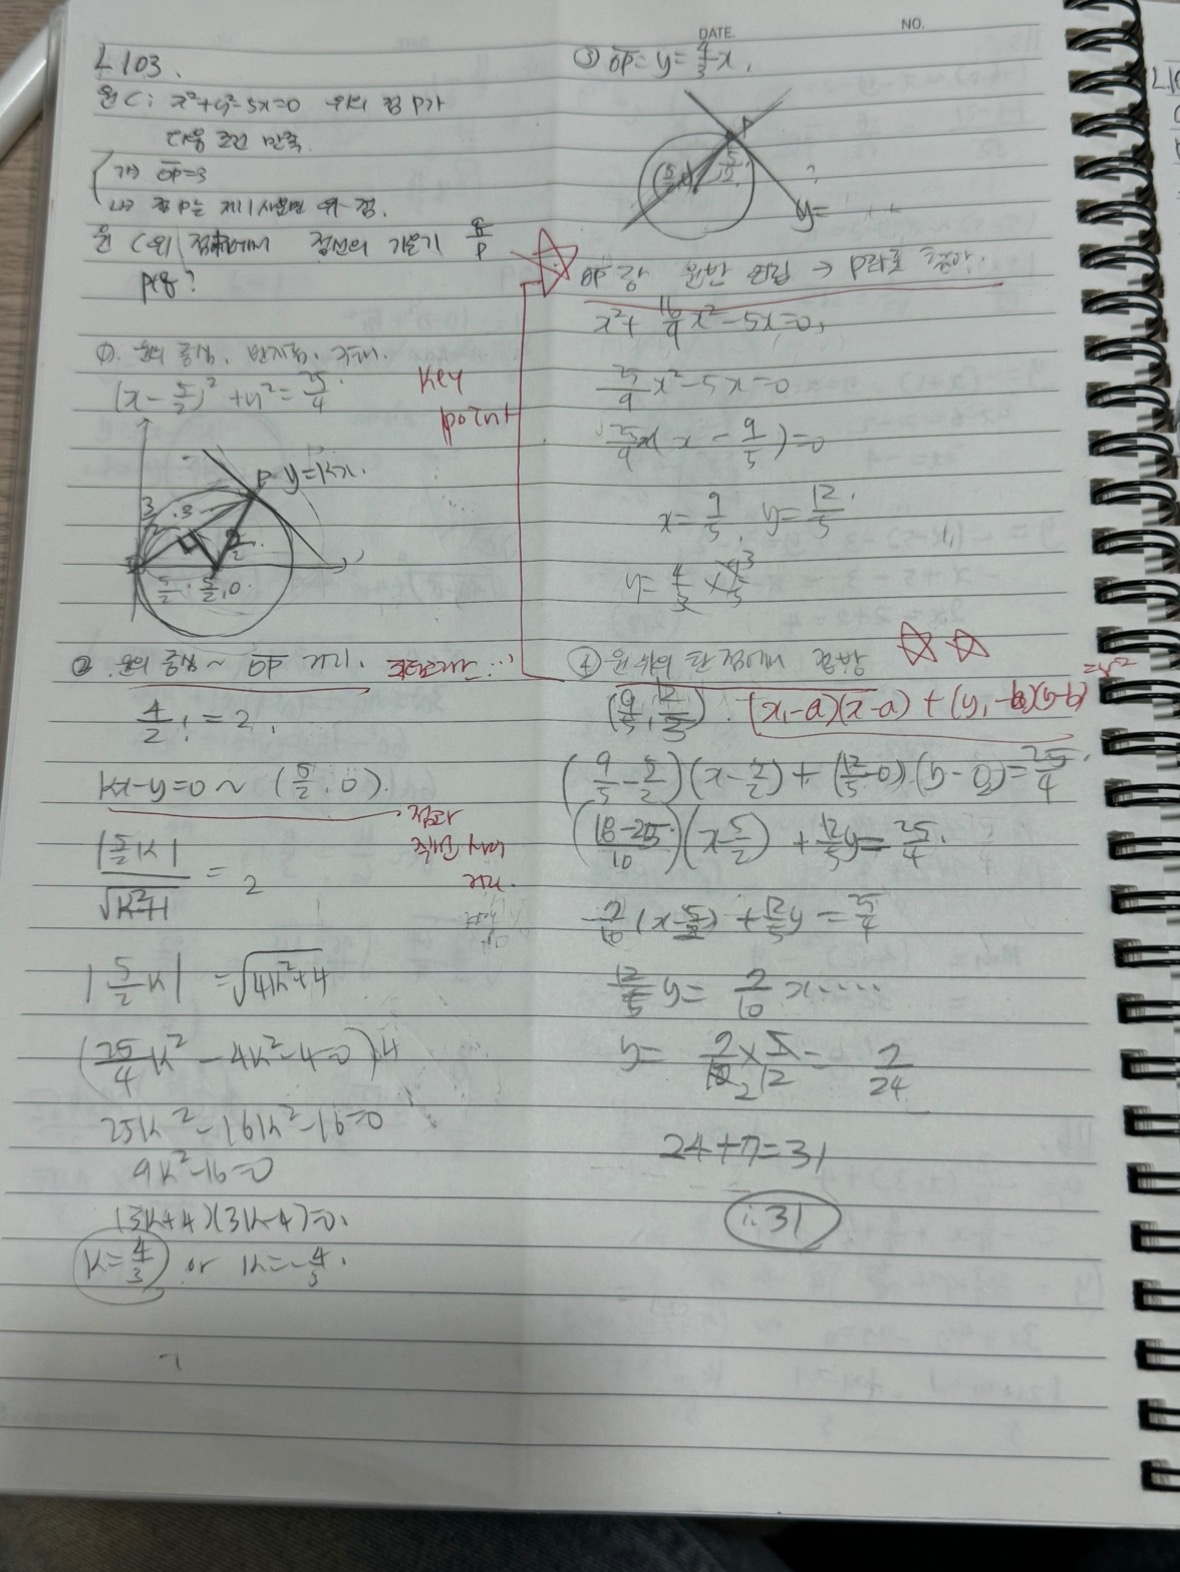 L103.
원 C: x²+y²-5x=0 위의 점 P가
다음 조건 만족.
(가) OP=3
(나) 점 P는 제1사분면 위의 점.
원 C위 점 P에서 접선의 기울기 q/p
p+q?
①. 원의 중심, 반지름. 구해.
(x-5/2)²+y²=25/4.
P y=kx.
3/2 . 3
5/2 . 5/2, 0
② 원의 중심 ~ OP 거리.
4/2, = 2.
kx-y=0 ~ (5/2, 0).
점과
직선 사이
거리.
|5/2k| / √k²+1 = 2
|5/2k| = √4k²+4
(25/4k²-4k²-4=0)×4
25k²-16k²-16=0
9k²-16=0
(3k+4)(3k-4)=0.
k=4/3 or k=-4/3.
DATE.
NO.
③ OP= y=4/3x.
P
5/2
y=
?
Key
point
x²+16/9x²-5x=0,
25/9x²-5x=0
25/9x(x-9/5)=0
x=9/5, y=12/5.
y=4/3×9/5 3
④ 원 위의 한 점에서 접방
(9/5, 12/5). (x₁-a)(x-a)+(y₁-b)(y-b)=r²
(9/5-5/2)(x-5/2)+(12/5-0)(y-0)=25/4.
(18-25/10)(x-5/2)+12/5y=25/4.
-7/10(x-5/2)+12/5y=25/4
12/5y=7/10x.....
y=7/10×5/12=7/24
24+7=31
∴31